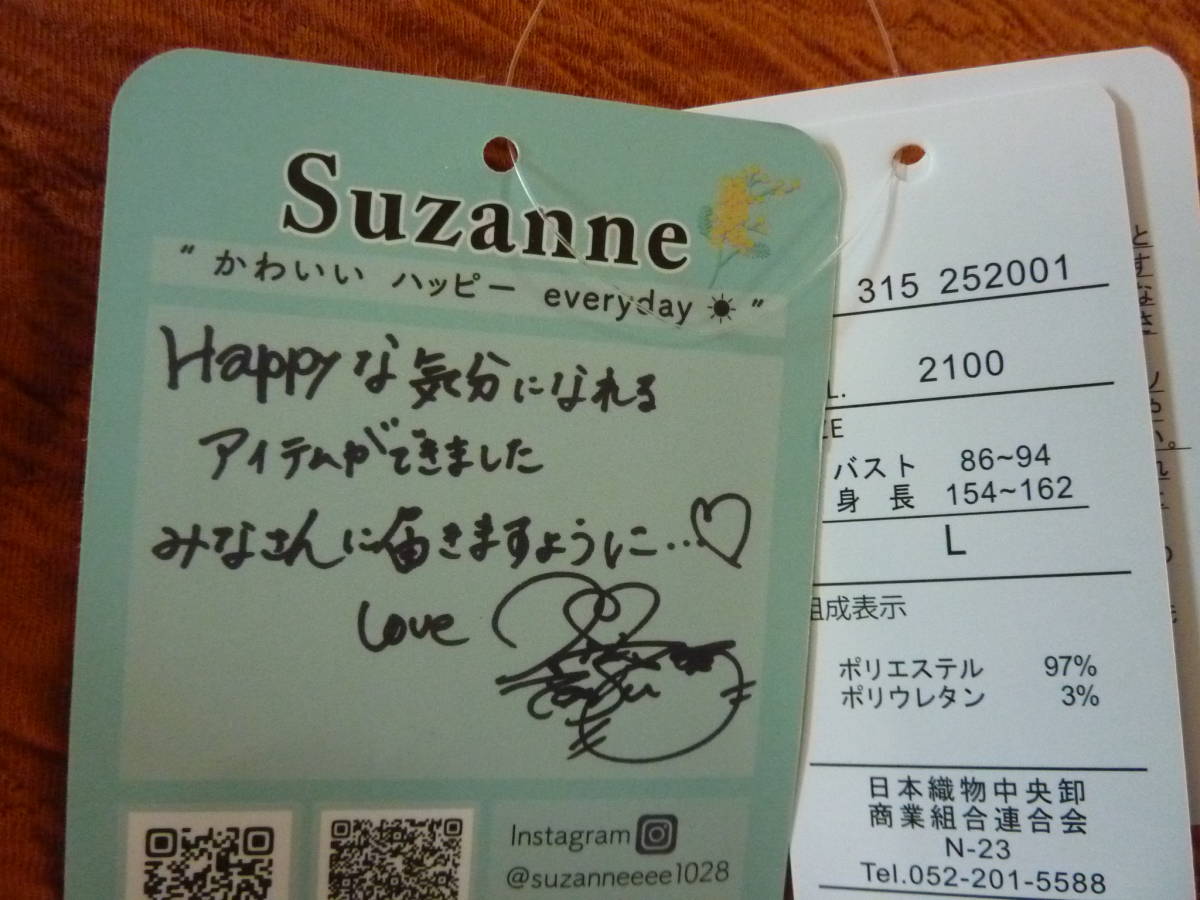 Suzanne
"かわいい ハッピー everyday☀"
Happyな気分になれる
アイテムができました
みなさんに届きますように…♡
Love
Instagram
@suzanneeee1028
315 252001
2100
バスト 86~94
身長 154~162
L
組成表示
ポリエステル 97%
ポリウレタン 3%
日本織物中央卸
商業組合連合会
N-23
Tel.052-201-5588